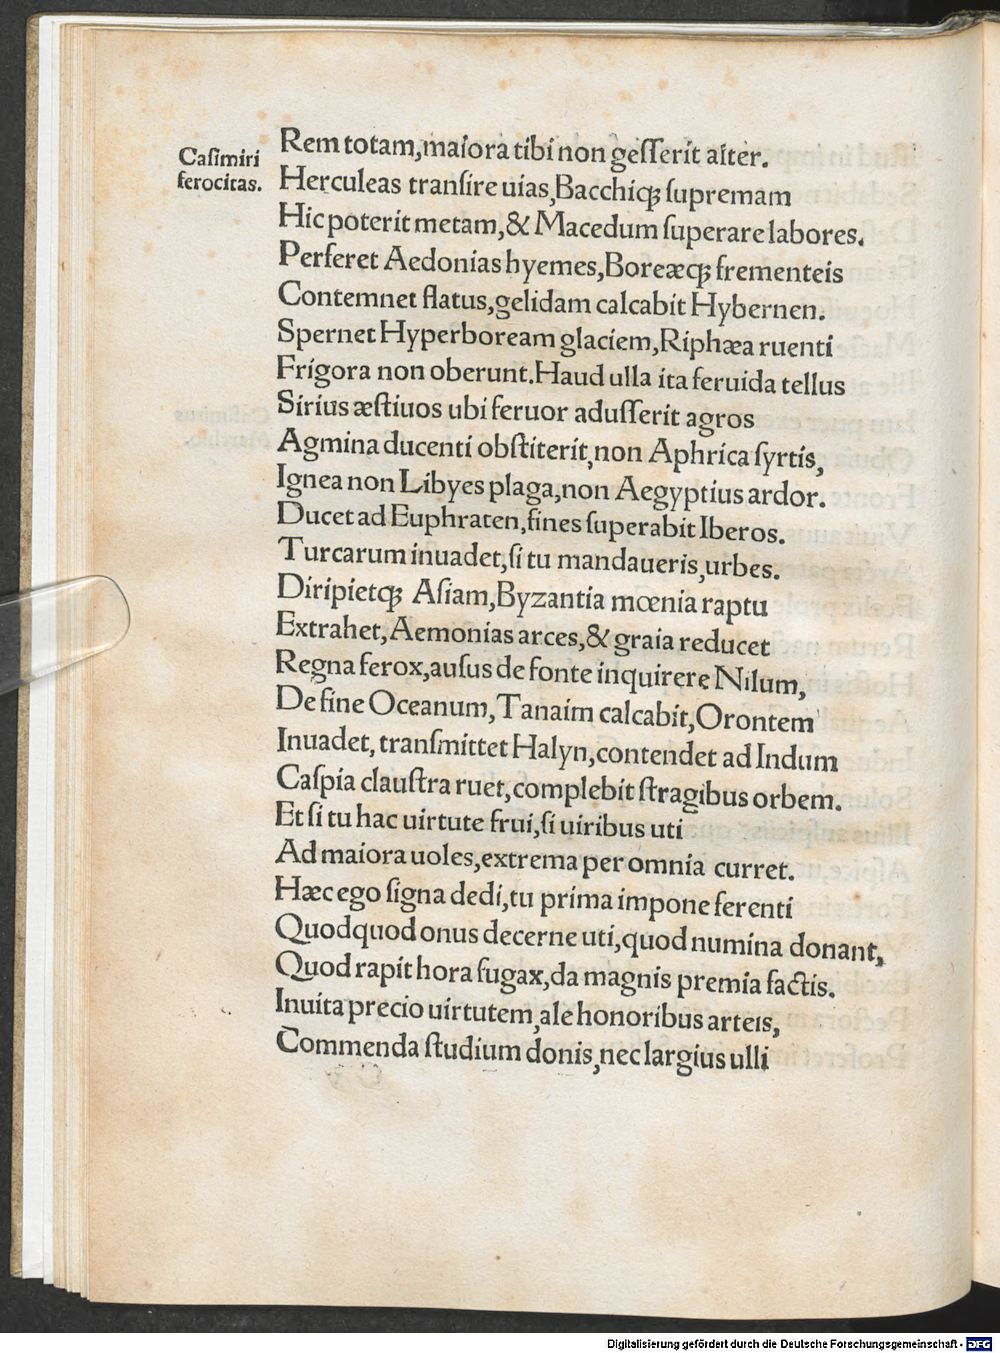 Casimiri
ferocitas.
Rem totam,maiora tibi non geſſerit alter.
Herculeas tranſire uias,Bacchiqꝫ ſupremam
Hic poterit metam,& Macedum ſuperare labores.
Perferet Aedonias hyemes,Boreæqꝫ frementeis
Contemnet flatus,gelidam calcabit Hybernen.
Spernet Hyperboream glaciem,Riphæa ruenti
Frigora non oberunt.Haud ulla ita feruida tellus
Sirius æſtiuos ubi feruor aduſſerit agros
Agmina ducenti obſtiterit,non Aphrica ſyrtis,
Ignea non Libyes plaga,non Aegyptius ardor.
Ducet ad Euphraten,fines ſuperabit Iberos.
Turcarum inuadet,ſi tu mandaueris,urbes.
Diripietqꝫ Aſiam,Byzantia mœnia raptu
Extrahet,Aemonias arces,& graia reducet
Regna ferox,auſus de fonte inquirere Nilum,
De fine Oceanum,Tanaim calcabit,Orontem
Inuadet, tranſmittet Halyn,contendet ad Indum
Caſpia clauſtra ruet,complebit ſtragibus orbem.
Et ſi tu hac uirtute frui,ſi uiribus uti
Ad maiora uoles,extrema per omnia curret.
Hæc ego ſigna dedi,tu prima impone ferenti
Quodquod onus decerne uti,quod numina donant,
Quod rapit hora fugax,da magnis premia factis.
Inuita precio uirtutem,ale honoribus arteis,
Commenda ſtudium donis,nec largius ulli
Digitalisierung gefördert durch die Deutsche Forschungsgemeinschaft - DFG